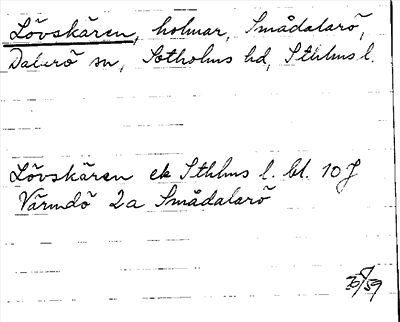 Lövskären, holmar, Smådalarö,
Dalarö sn, Sotholms hd, Sthlms l.
Lövskären ek Sthlms l. bl. 10J
Värmdö 2a Smådalarö
/59